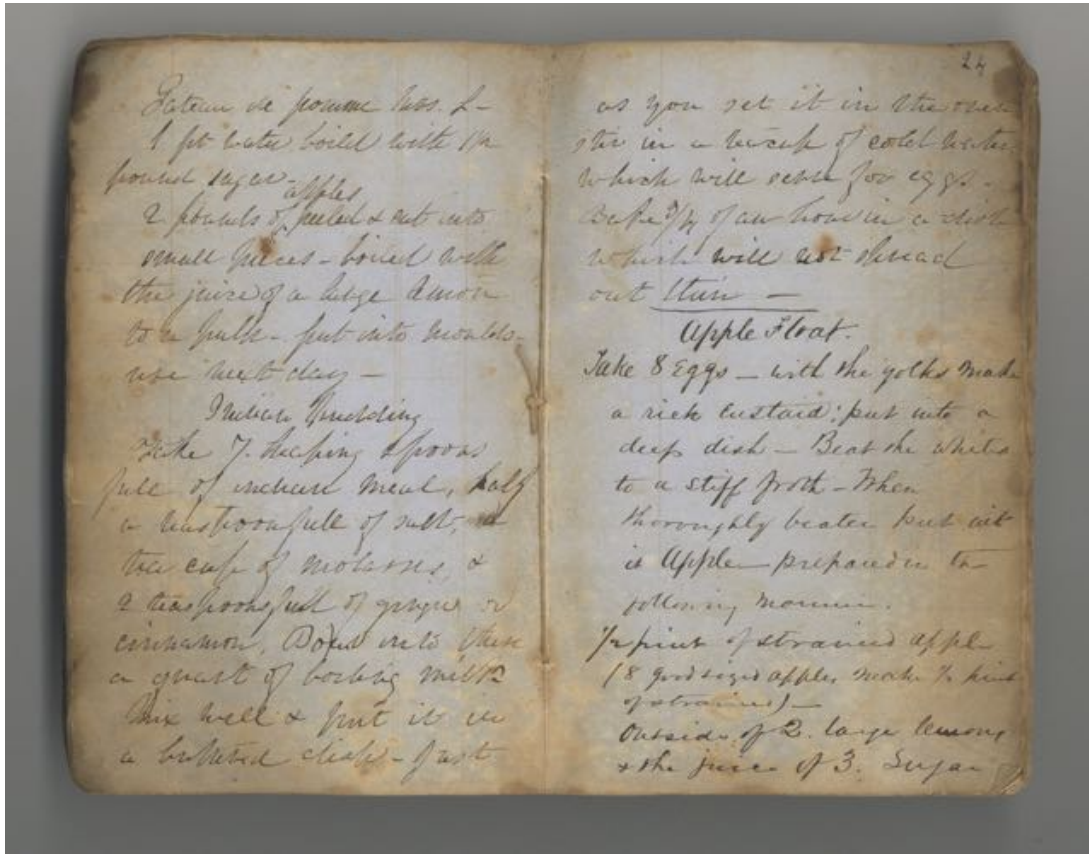 Gateau de pomme Mrs. L-
1 pt water boiled with 1 1/2
pound sugar -
apples
2 pounds of peeled & cut into
small pieces - boiled with
the juice of a large lemon
to a pulp - put into moulds -
use next day -
Indian pudding
Take 7. heaping spoons
full of indian meal, half
a teaspoonfull of salt, a
tea cup of molasses, &
2 teaspoonsfull of ginger or
cinnamon. Pour into these
a quart of boiling milk
Mix well & put it in
a buttered dish - Just
24
as you set it in the oven
stir in a teacup of cold water
which will serve for eggs -
Bake 3/4 of an hour in a dish
which will not spread
out thin -
Apple Float.
Take 8 Eggs - with the yolks make
a rich custard; put into a
deep dish - Beat the whites
to a stiff froth - When
thoroughly beaten put
Apple prepared in
following manner.
1/2 pint of strained apple
(8 good sized apples make 1/2 pint
of strained) -
Outside of 2. large lemons
& the juice of 3. Sugar